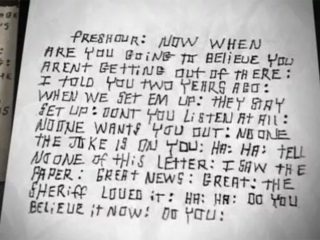 FRESHOUR: NOW WHEN
ARE YOU GOING TO BELIEVE YOU
ARENT GETTING OUT OF THERE:
I TOLD YOU TWO YEARS AGO:
WHEN WE SET EM UP: THEY STAY
SET UP: DONT YOU LISTEN AT ALL:
NO ONE WANTS YOU OUT: NO ONE
THE JOKE IS ON YOU: HA: HA: TELL
NO ONE OF THIS LETTER: I SAW THE
PAPER: GREAT NEWS: GREAT: THE
SHERIFF LOVED IT: HA: HA: DO YOU
BELIEVE IT NOW: DO YOU: